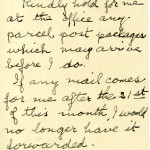 Kindly hold for me
at the office any
parcel post packages
which may arrive
before I do.
If any mail comes
for me after the 21st
of this month, I would
no longer have it
forwarded.